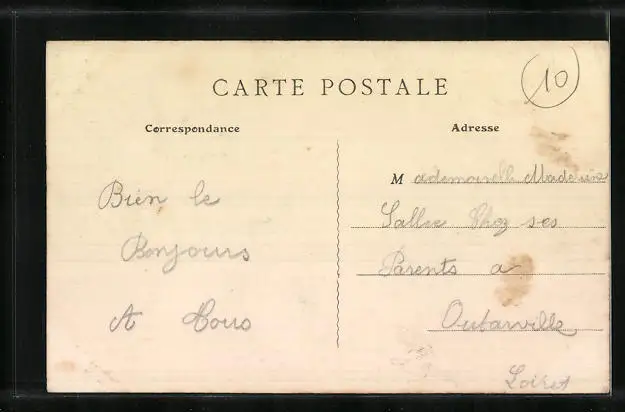 CARTE POSTALE
10
Correspondance
Bien le
Bonjours
A Tous
Adresse
Mademoiselle Madeleine
Sallie Chez ses
Parents a
Outarville
Loiret